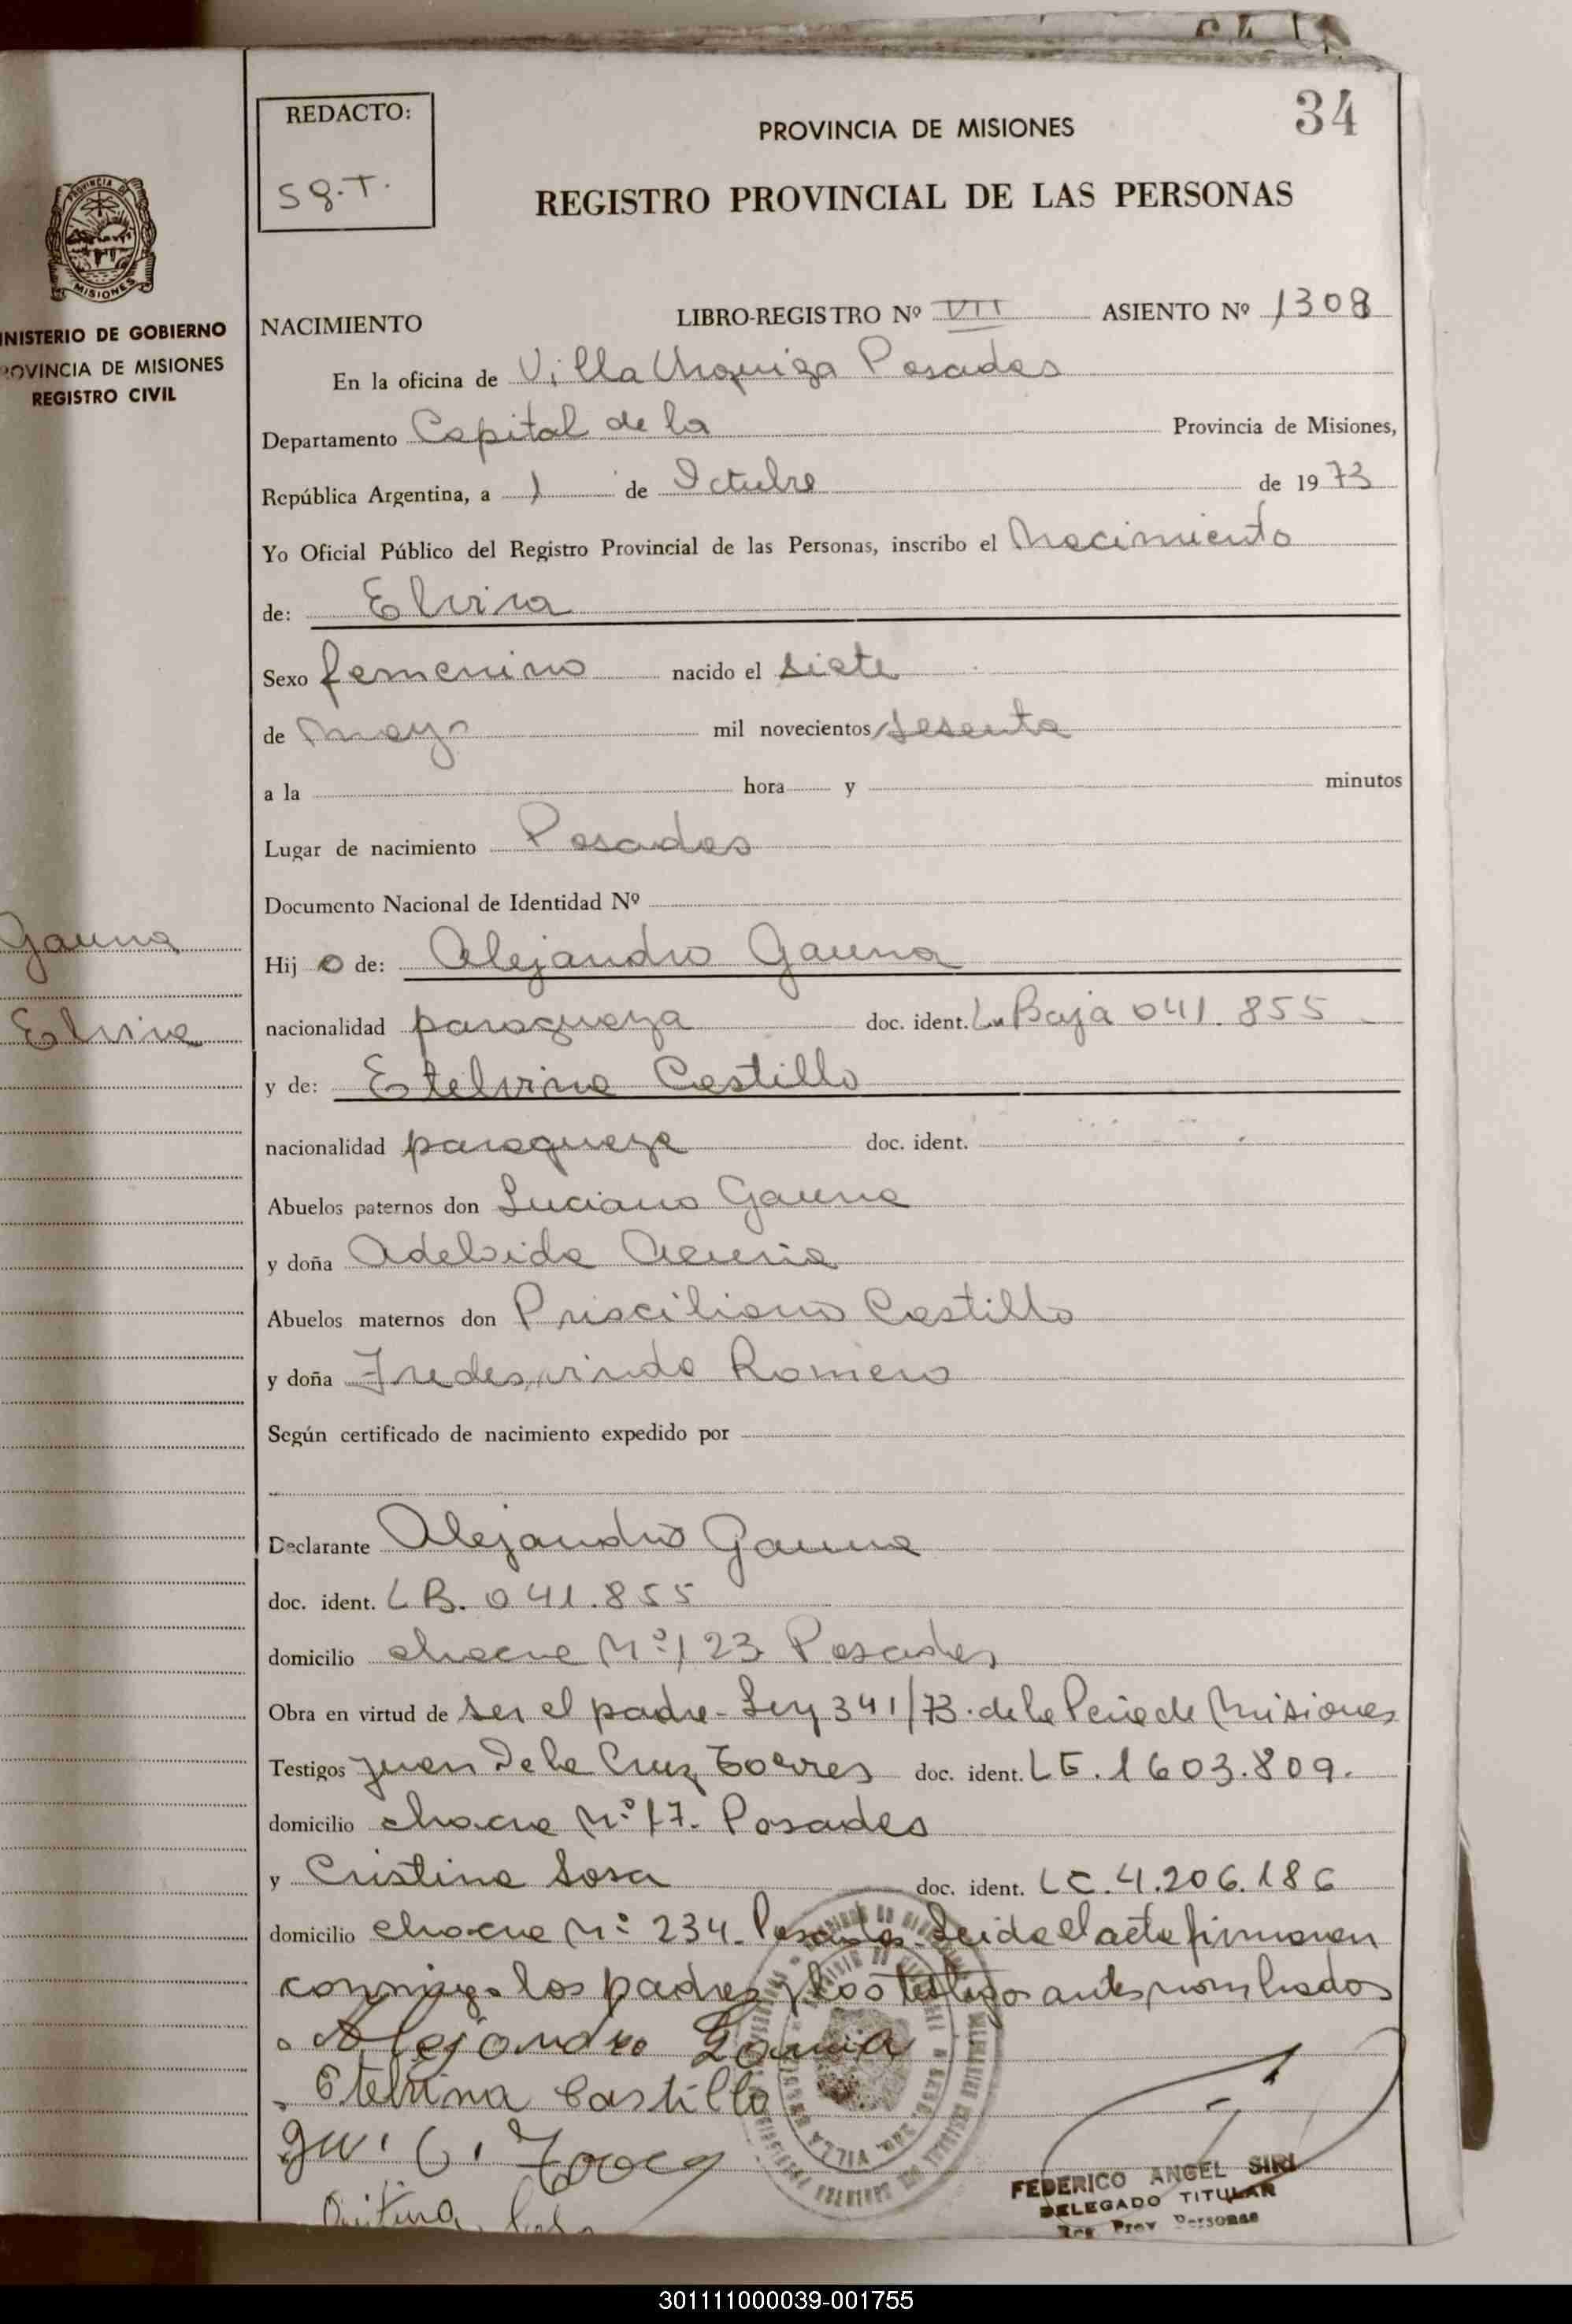 34
REDACTO:
S g. T.
PROVINCIA DE MISIONES
REGISTRO PROVINCIAL DE LAS PERSONAS
MISIONES
INISTERIO DE GOBIERNO
ROVINCIA DE MISIONES
REGISTRO CIVIL
NACIMIENTO LIBRO-REGISTRO Nº VII ASIENTO Nº 1308
En la oficina de Villa Urquiza Posadas
Departamento Capital de la Provincia de Misiones,
República Argentina, a 1 de Octubre de 1973
Yo Oficial Público del Registro Provincial de las Personas, inscribo el Nacimiento
de: Elvira
Sexo femenino nacido el siete
de Mayo mil novecientos sesenta
a la hora y minutos
Lugar de nacimiento Posadas
Documento Nacional de Identidad Nº
Gauna
Elvira
Hij o de: Alejandro Gauna
nacionalidad paraguaya doc. ident. L. Baja 041.855
y de: Estelvina Castillo
nacionalidad paraguaya doc. ident.
Abuelos paternos don Luciano Gauna
y doña Adelaida Acuña
Abuelos maternos don Prisciliano Castillo
y doña Fredesvinda Romero
Según certificado de nacimiento expedido por
Declarante Alejandro Gauna
doc. ident. L B. 041.855
domicilio chacra Nº 123 Posadas
Obra en virtud de ser el padre - Ley 341/73. de la Pcia de Misiones
Testigos Juan De la Cruz Torres doc. ident. L E. 1603.809.
domicilio chacra Nº 17. Posadas
y Cristina Sosa doc. ident. L C. 4.206.186
domicilio chacra Nº 234. Posadas. Leida el acta firmaron
conmigo los padres y los testigos antes nombrados
Alejandro Gauna
Etelvina Castillo
FEDERICO ANGEL SIRI
DELEGADO TITULAR
Reg Prov Personas
301111000039-001755